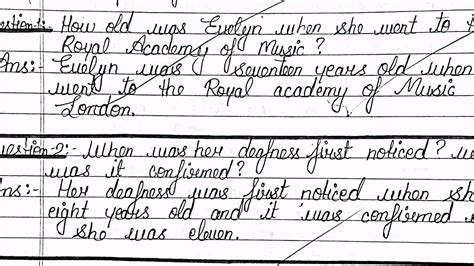 estion-1:- How old was Evelyn when she went to t
Royal Academy of Music ?
Ans:- Evelyn was seventeen years old when
went to the Royal academy of Music
London.
uestion-2:- When was her deafness first noticed ? w
was it confirmed ?
ns:- Her deafness was first noticed when sh
eight years old and it was confirmed
she was eleven.